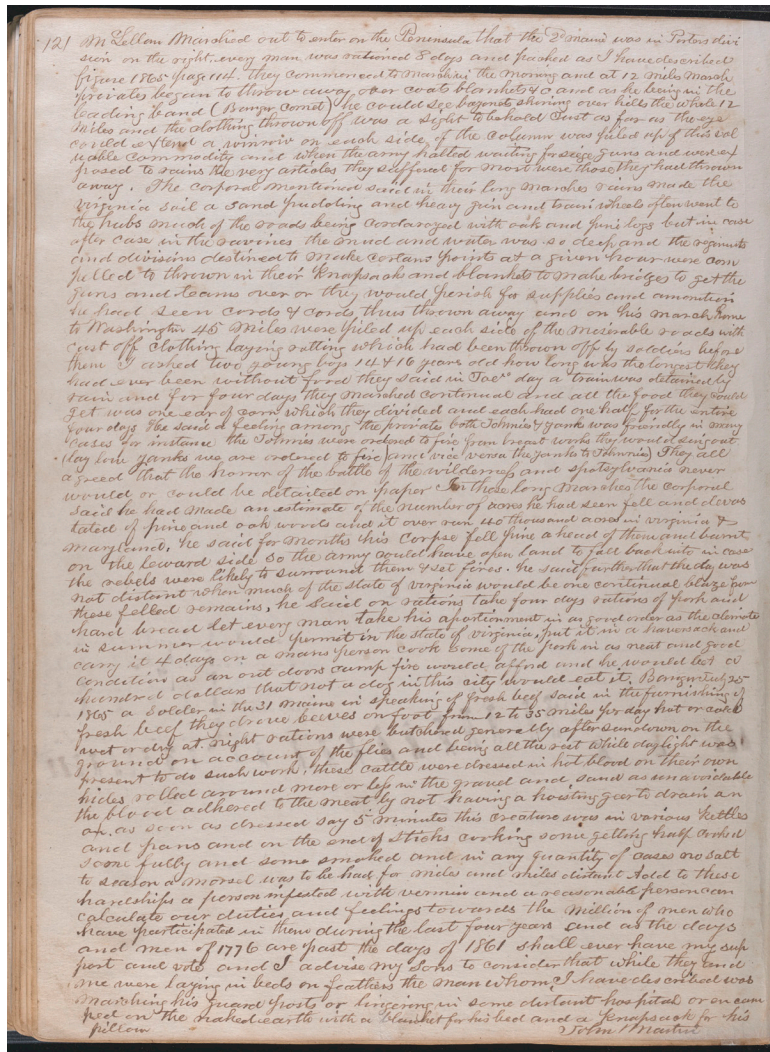 121 McLellan Marched out to enter on the Peninsula that the 2d maine was in Porters divi
sion on the right. every man was rationed 8 days and packed as I have described
figure 1865 page 114. they commenced to march in the morning and at 12 miles march
privates began to throw away over coats blankets &c and as he being in the
leading band (Bangor Cornet) he could see bayonets shining over hills the whole 12
miles and the clothing thrown off was a sight to behold Just as far as the eye
could extend a winrow on each side of the column was piled up of this val
uable commodity and when the army halted waiting for siege guns and were ex
posed to rains the very articles they suffered for most were those they had thrown
away. The corporal mentioned said in their long marches rains made the
virginia soil a sand pudding and heavy gun and train wheels often went to
the hubs much of the roads being cordaroyed with oak and pine logs but in case
after case in the ravines the mud and water was so deep and the regiments
and divisions destined to make certain points at a given hour were com
pelled to thrown in their knapsacks and blankets to make bridges to get the
guns and teams over or they would perish for supplies and amonition
he had seen cords & cords thus thrown away and on his march home
to Washington 45 miles were piled up each side of the miserable roads with
cast off clothing laying rotting which had been thrown off by soldiers before
them I asked two young boys 14 & 16 years old how long was the longest they
had ever been without food they said in day a train was detained by
rain and for four days they marched continual and all the food they could
get was one ear of corn which they divided and each had one half for the entire
four days He said a feeling among the privates both Johnies & yanks was friendly in many
cases for instance the Johnies were ordered to fire from breast works they would sing out
(lay low yanks we are ordered to fire) and vice versa the yanks to Johnnies) They all
agreed that the horror of the battle of the wilderness and spotsylvania never
would or could be detailed on paper In those long marches the corporal
said he had made an estimate of the number of acres he had seen fell and devas
tated of pine and oak woods and it over run 40 thousand acres in virginia &
maryland, he said for months his Corpse fell pine a head of them and burnt
on the leward side so the army could have open land to fall back into in case
the rebels were likely to surround them & set fires. he said further that the day was
not distant when much of the state of virginia would be one continual blaze from
these felled remains, he said on rations take four days rations of pork and
hard bread let every man take his apportionment in as good order as the climate
in summer would permit in the state of virginia, put it in a haversack and
carry it 4 days on a mans person cook some of the pork in as neat and good
condition as an out doors camp fire would afford and he would bet a
hundred dollars that not a dog in this city would eat it, Bangor July 25
1865 a Solder in the 31 maine in speaking of fresh beef said in the furnishing of
fresh beef they drove beeves on foot from 12 to 35 miles per day hot or cold
wet or dry at night rations were butchered generally after sundown on the
ground on account of the flies and being all the rest while daylight was
present to do such work, these cattle were dressed in hot blood on their own
hides rolled around more or less in the gravel and sand as unavoidable
the blood adhered to the meat by not having a hoisting gear to drain an
ox, as soon as dressed say 5 minutes this creature was in various kettles
and pans and on the end of sticks cooking some getting half cooked
some fully and some smoked and in any quantity of cases no salt
to season a morsel was to be had for miles and miles distant Add to these
hardships a person infested with vermin and a reasonable person can
calculate our duties and feelings towards the Million of men who
have participated in them during the last four years and as the days
and men of 1776 are past the days of 1861 shall ever have my sup
port and vote and I advise my Sons to consider that while they and
me were laying in beds on feathers the man whom I have described was
marching his guard posts or lingering in some distant hospital or en cam
ped on the naked earth with a blanket for his bed and a knapsack for his
pillow John Martin